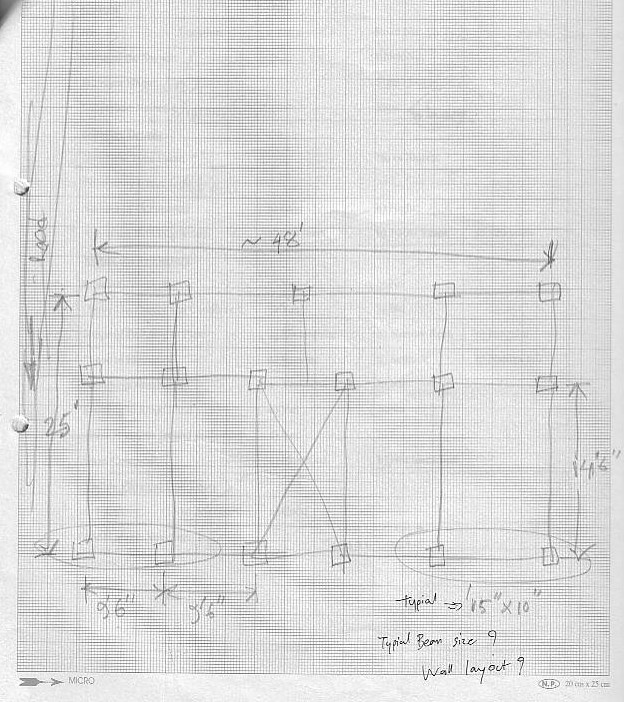 ~ 48'
Road
25'
14'6"
9'6"
9'6"
typial → 15" x 10"
Typial Beam size ?
Wall layout ?
MICRO
N.P. 20 cm x 25 cm